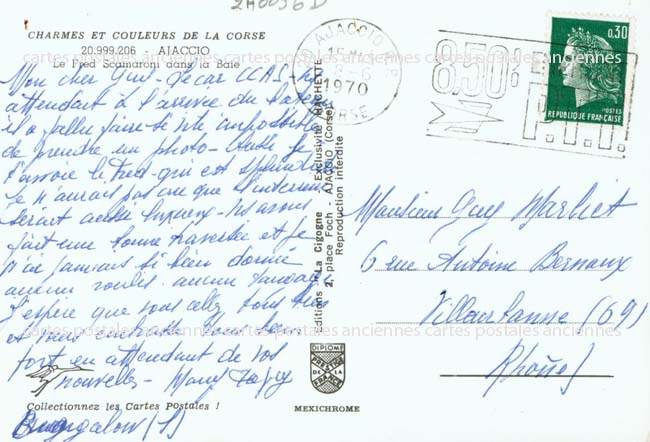 CHARMES ET COULEURS DE LA CORSE
20.999.206 - AJACCIO
Le Fred Scamaroni dans la Baie
Mon cher Guy - le car CCAS
attendait à l'arrivée du bateau
il a fallu faire si vite impossible
de prendre un photo -
t'envoie le Fred - qui est splendide
Je n'aurais pas cru que l'intérieur
serait aussi luxueux - ns avons
fait une bonne traversée et je
n'ai jamais si bien dormi
aucun roulis - aucun
J'espère que vous allez tous bien
et vous embrasse
fort en attendant de vos
nouvelles -
Bungalow (1)
Collectionnez les Cartes Postales !
Editions "La Cigogne" Exclusivité HACHETTE
2, place Foch - AJACCIO (Corse)
Reproduction interdite
DIPLOME
PRESTIGE
DE LA
FRANCE
MEXICHROME
AJACCIO
1970
CORSE
8.50
P.T.T.
0,30
POSTES
REPUBLIQUE FRANÇAISE
Monsieur Guy Marliet
6 rue Antoine Bernoux
Villeurbanne (69)
Rhône
cartes postales anciennes cartes postales anciennes cartes postales anciennes
cartes postales anciennes cartes postales anciennes cartes postales anciennes